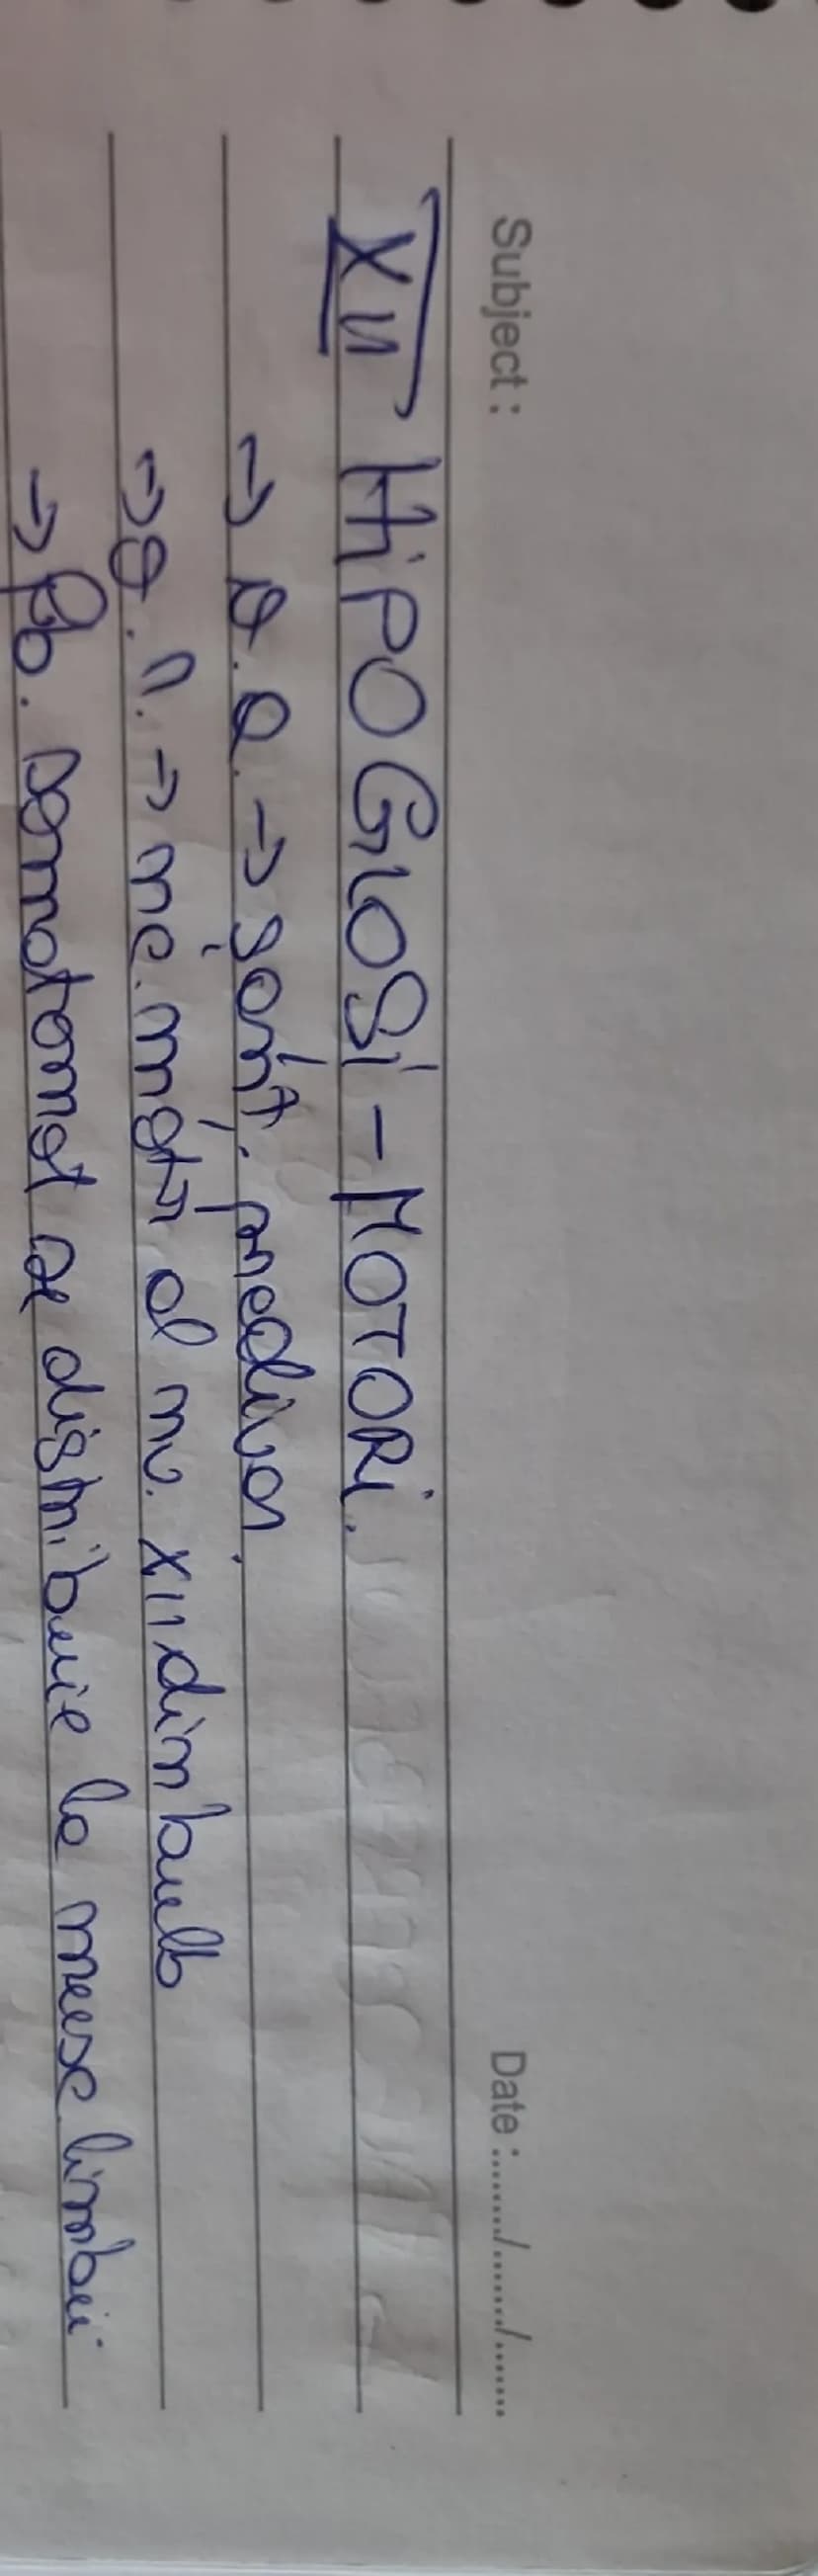 Subject : Date : ......./......./.......
XII HiPOGLOSi - MOTORi.
→ O. a. → șanț. preoliva.
→ O. r. → nc. motor al nv. XII din bulb
→ fb. somatomot se distribuie la musc limbii